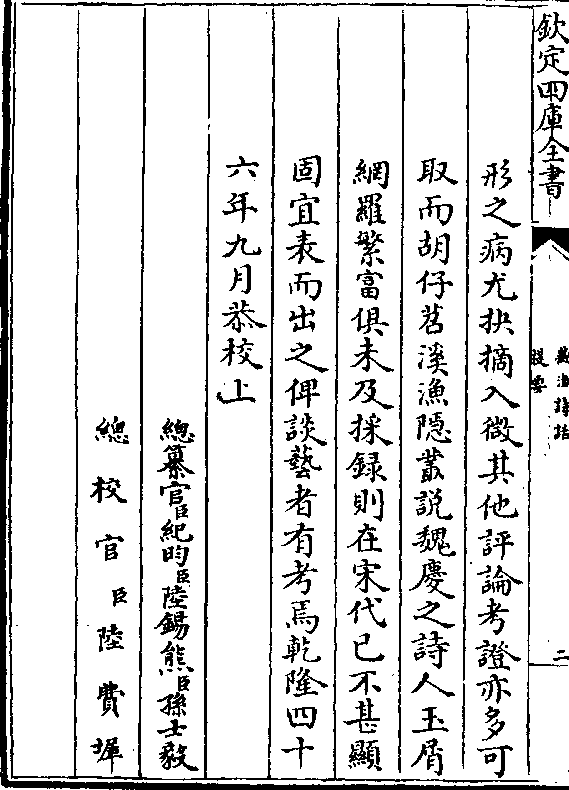 欽定四庫全書
提要
二
形之病尤抉摘入微其他評論考證亦多可
取而胡仔苕溪漁隱叢説魏慶之詩人玉屑
網羅繁富俱未及採録則在宋代已不甚顯
固宜表而出之俾談藝者有考焉乾隆四十
六年九月恭校上
總纂官臣紀昀臣陸錫熊臣孫士毅
總校官臣陸費墀